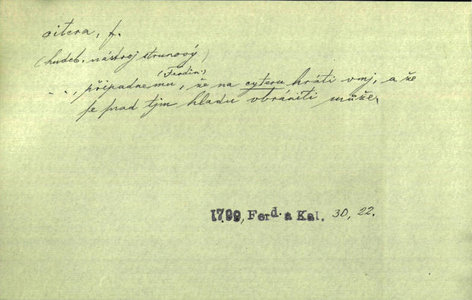 citera, f.
(hudeb. nástroj strunový)
(Ferdin)
- -, připadnemu, že na cyteru hráti umj, a že
se pred tým hladu obrániti může.
1799, Ferd. a Kal. 30, 22.